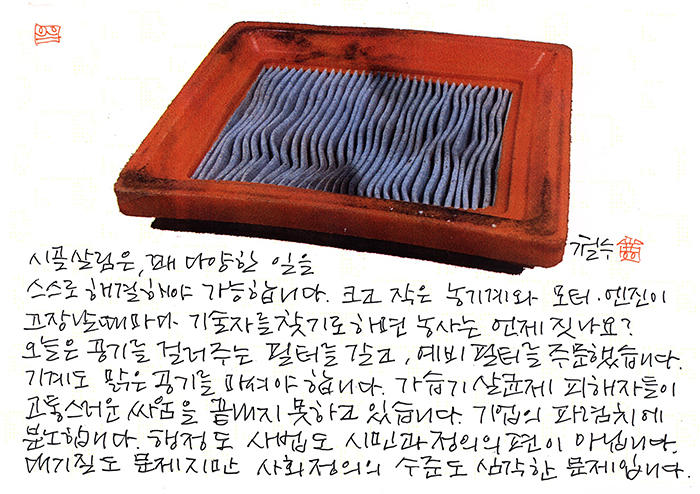 철수
시골살림은, 꽤 다양한 일을
스스로 해결해야 가능합니다. 크고 작은 농기계와 모터·엔진이
고장날때마다 기술자를 찾기로하면 농사는 언제 짓나요?
오늘은 공기를 걸러주는 필터를 갈고, 예비 필터를 주문했습니다.
기계도 맑은 공기를 마셔야 합니다. 가습기 살균제 피해자들이
고통스러운 싸움을 끝내지 못하고 있습니다. 기업의 파렴치에
분노합니다. 행정도 사법도 시민과 정의의 편이 아닙니다.
대기질도 문제지만 사회정의의 수준도 심각한 문제입니다.